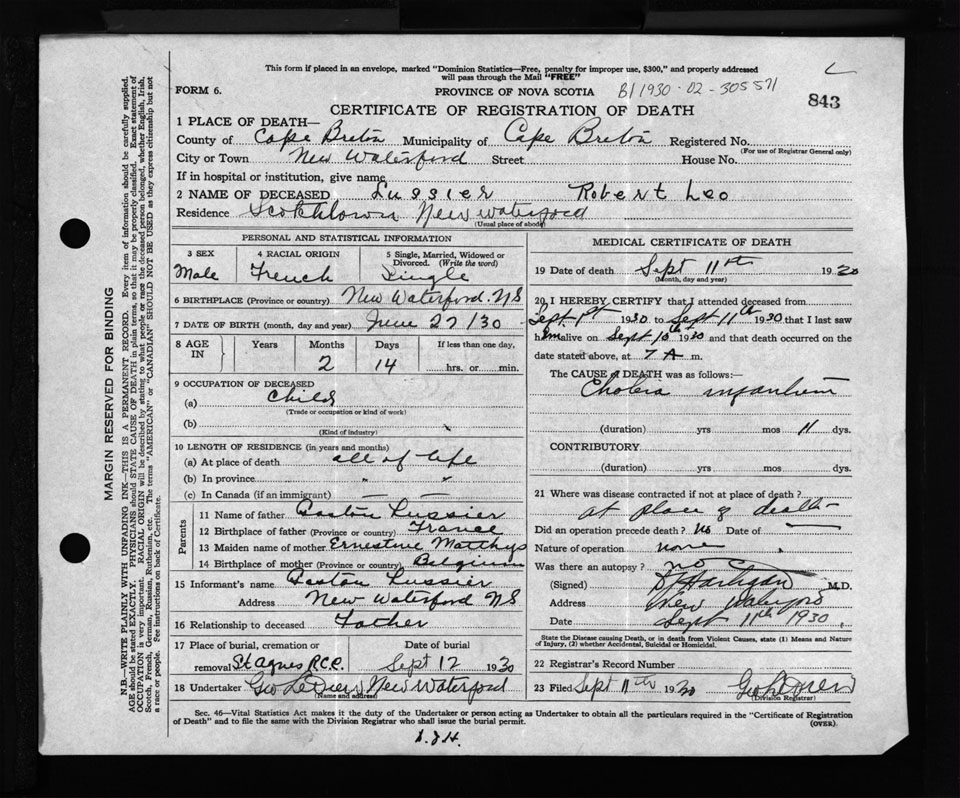 This form if placed in an envelope, marked "Dominion Statistics—Free, penalty for improper use, $300," and properly addressed
will pass through the Mail "FREE"
FORM 6.
PROVINCE OF NOVA SCOTIA
B/1930-02-305571
843
CERTIFICATE OF REGISTRATION OF DEATH
1 PLACE OF DEATH—
County of Cape Breton Municipality of Cape Breton Registered No.
(For use of Registrar General only)
City or Town New Waterford Street House No.
If in hospital or institution, give name
2 NAME OF DECEASED Lussier Robert Leo
Residence Scotchtown New Waterford
(Usual place of abode)
PERSONAL AND STATISTICAL INFORMATION
3 SEX 4 RACIAL ORIGIN 5 Single, Married, Widowed or
Divorced. (Write the word)
Male French Single
6 BIRTHPLACE (Province or country) New Waterford. NS
7 DATE OF BIRTH (month, day and year) June 27/30
8 AGE IN Years Months Days If less than one day,
2 14 hrs. or min.
9 OCCUPATION OF DECEASED
(a) Child
(Trade or occupation or kind of work)
(b)
(Kind of industry)
10 LENGTH OF RESIDENCE (in years and months)
(a) At place of death all of life
(b) In province " "
(c) In Canada (if an immigrant) — —
Parents
11 Name of father Lussier
12 Birthplace of father (Province or country) France
13 Maiden name of mother Ernestine Matthys
14 Birthplace of mother (Province or country) Belgium
15 Informant's name Lussier
Address New Waterford NS
16 Relationship to deceased Father
17 Place of burial, cremation or Date of burial
removal St Agnes R.C.C. Sept 12 1930
18 Undertaker Geo New Waterford
(Name and address)
MEDICAL CERTIFICATE OF DEATH
19 Date of death Sept 11th 1930
(Month, day and year)
20 I HEREBY CERTIFY that I attended deceased from
Sept 1st 1930 to Sept 11th 1930 that I last saw
him alive on Sept 10th 1930 and that death occurred on the
date stated above, at 7 A m.
The CAUSE of DEATH was as follows:—
Cholera infantum
(duration) yrs mos 11 dys.
CONTRIBUTORY
(duration) yrs mos dys.
21 Where was disease contracted if not at place of death?
at place of death
Did an operation precede death? No Date of —
Nature of operation none
Was there an autopsy? no
(Signed) Hartigan M.D.
Address New Waterford
Date Sept 11th 1930
State the Disease causing Death, or in death from Violent Causes, state (1) Means and Nature
of Injury, (2) whether Accidental, Suicidal or Homicidal.
22 Registrar's Record Number
23 Filed Sept 11th 1930 Geo
(Division Registrar)
Sec. 46—Vital Statistics Act makes it the duty of the Undertaker or person acting as Undertaker to obtain all the particulars required in the "Certificate of Registration
of Death" and to file the same with the Division Registrar who shall issue the burial permit.
(OVER)
MARGIN RESERVED FOR BINDING
N.B.—WRITE PLAINLY WITH UNFADING INK—THIS IS A PERMANENT RECORD. Every item of information should be carefully supplied.
AGE should be stated EXACTLY. PHYSICIANS should STATE CAUSE OF DEATH in plain terms, so that it may be properly classified. Exact statement of
OCCUPATION is very important. RACIAL ORIGIN will be described by stating to what people or race the deceased person belonged, whether English, Irish,
Scotch, French, German, Russian, Ruthenian, etc. The terms "AMERICAN" or "CANADIAN" SHOULD NOT BE USED as they express citizenship but not
a race or people. See instructions on back of Certificate.